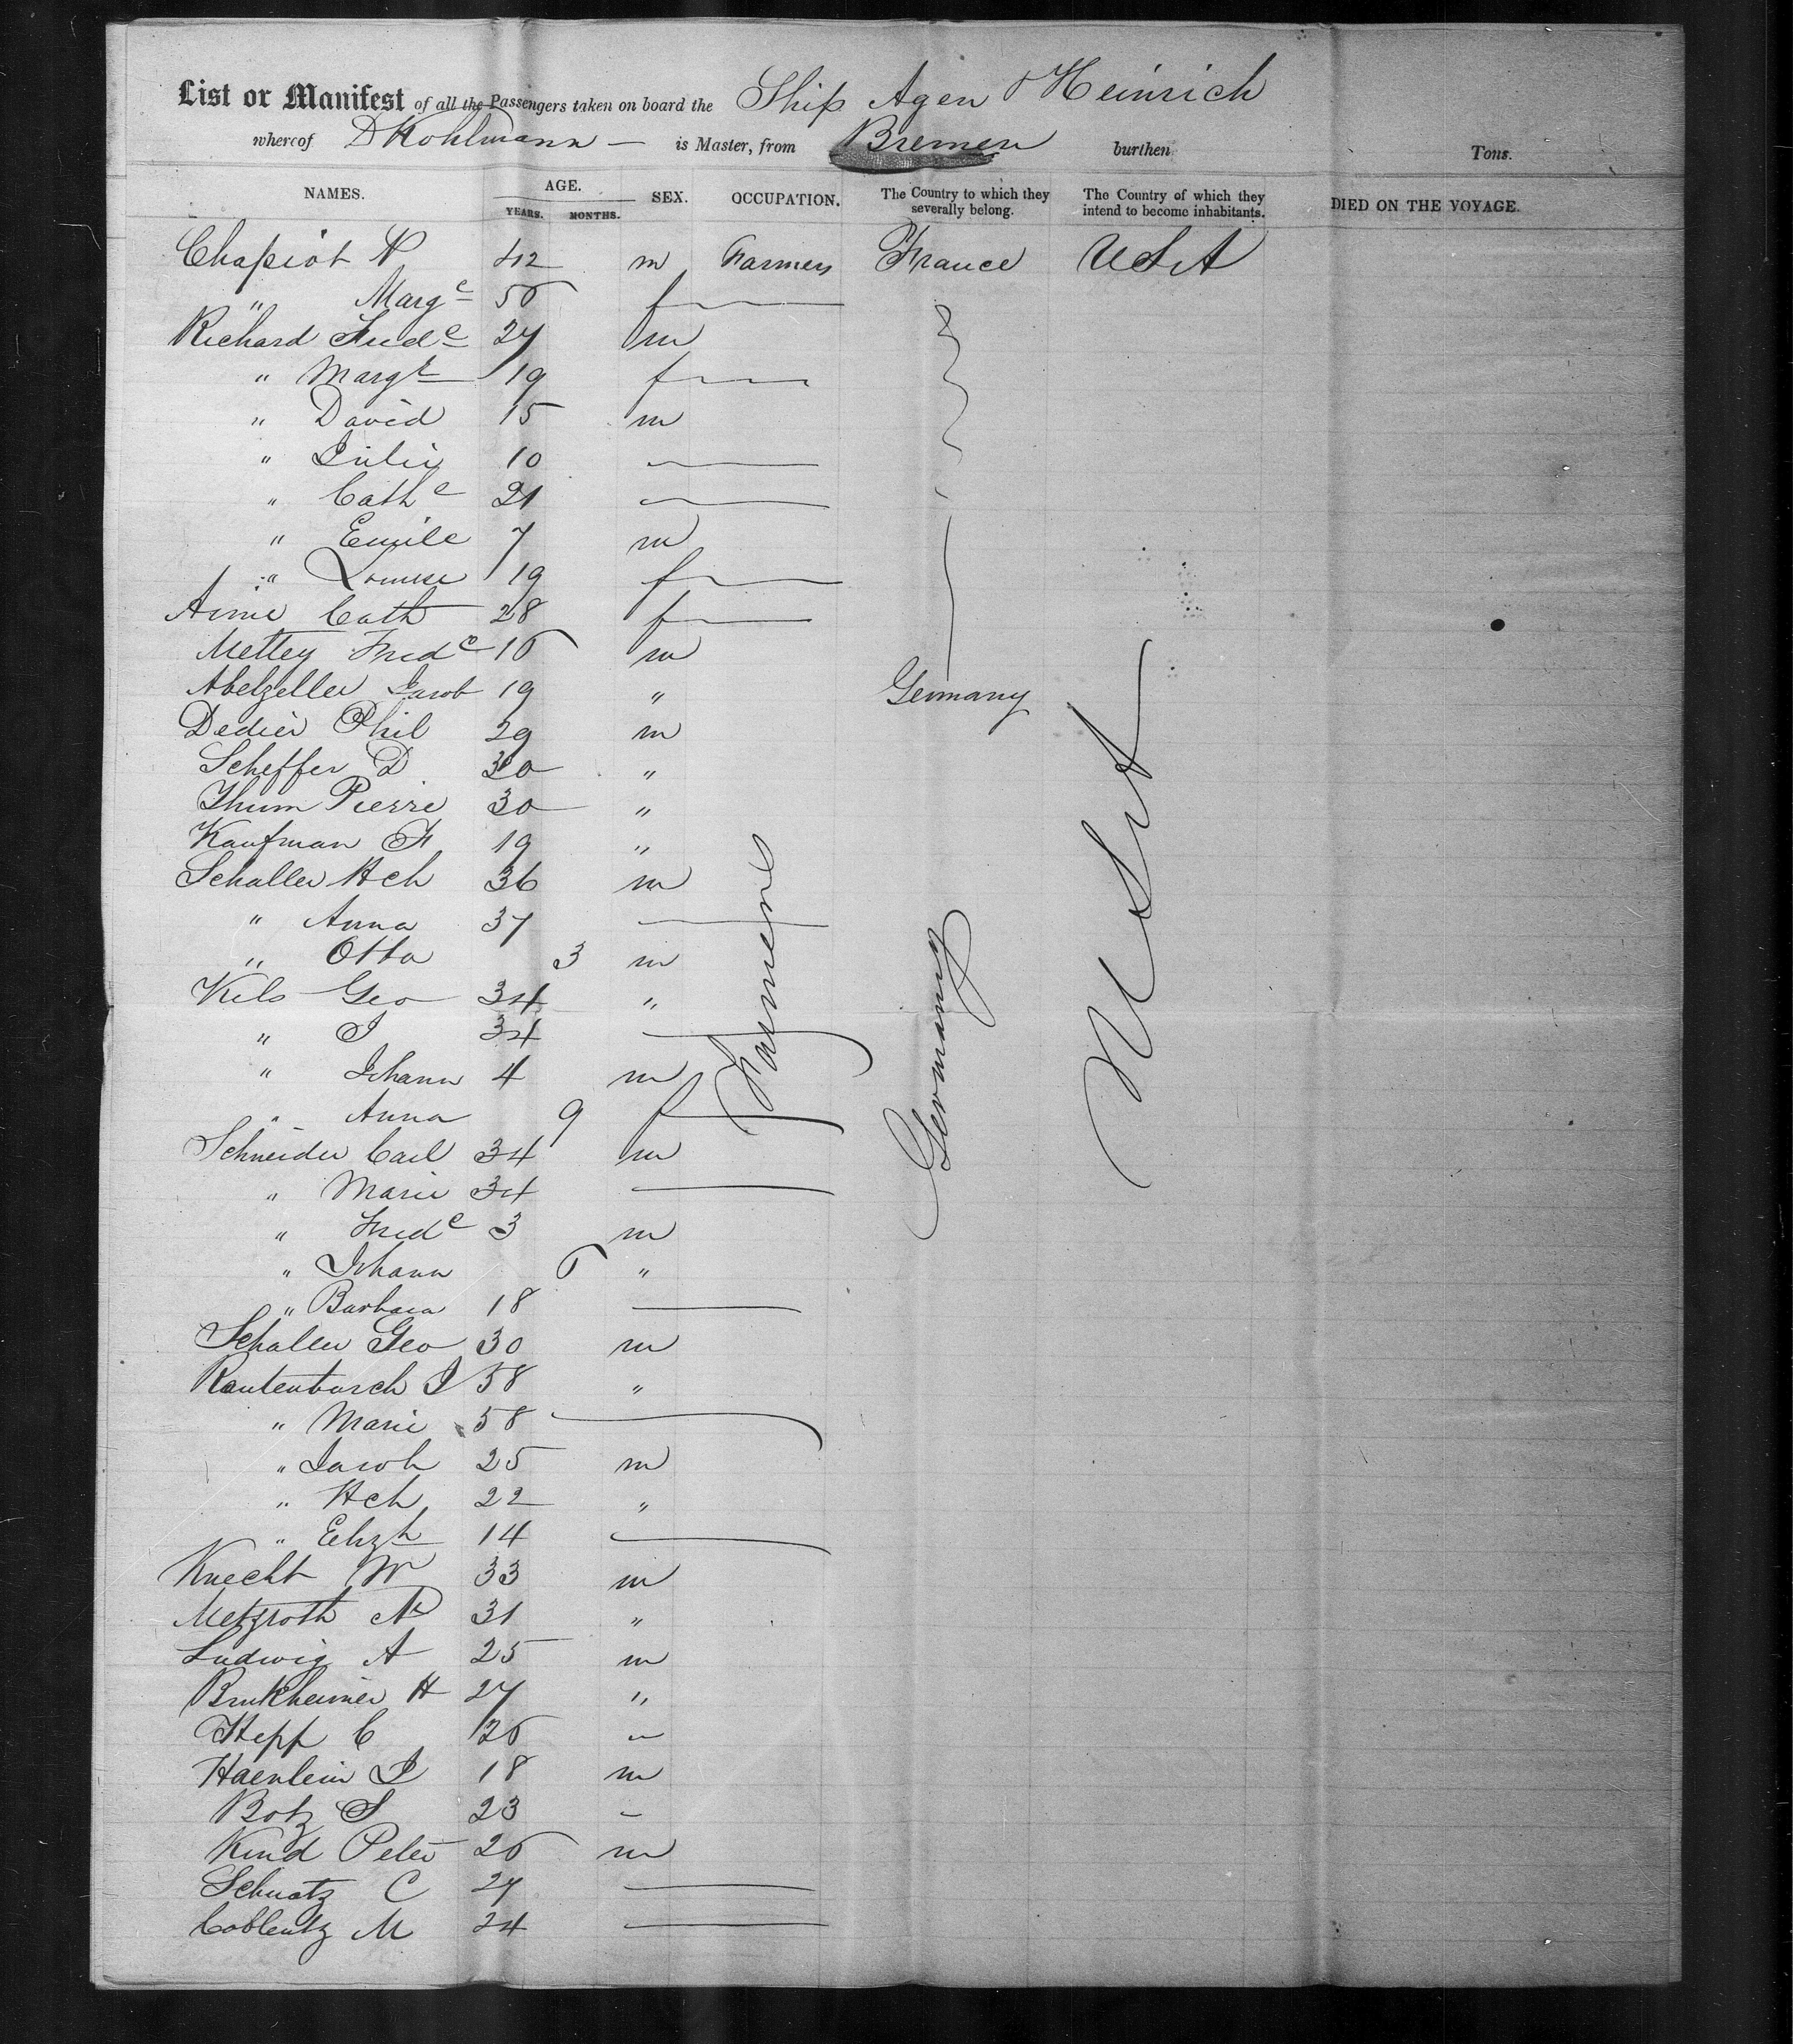 List or Manifest of all the Passengers taken on board the Ship Agen & Heinrich
whereof D Kohlmann is Master, from Bremen burthen Tons.
NAMES. AGE. YEARS. MONTHS. SEX. OCCUPATION. The Country to which they severally belong. The Country of which they intend to become inhabitants. DIED ON THE VOYAGE.
Chapiot N 42 m Farmers France USA
" Marge 56 f
Richard Fredc 27 m
" Margt 19 f
" David 15 m
" Julie 10
" Cathe 21
" Emile 7 m
" Louise 19 f
Aime Cath 28 f
Mettey Fredc 16 m
Abelzeller Jacob 19 " Germany
Dedier Phil 29 m
Scheffer D 30 "
Thum Pierre 30 "
Kaufman F 19 "
Schaller Hch 36 m
" Anna 37
" Otto 3 m
Kels Geo 34 "
" J 34
" Johann 4 m
" Anna 9 f
Farmers
Germany
USA
Schneider Carl 34 m
" Marie 34
" Fredc 3 m
" Johann 6 "
" Barbara 18
Schaler Geo 30 m
Rautenbusch J 58 "
" Marie 58
" Jacob 25 m
" Hch 22 "
" Elizh 14
Knecht W 33 m
Metzroth N 31 "
Ludwig A 25 m
Brukheimer H 27 "
Hepp C 26
Haenlein J 18 m
Botz S 23
Kind Peter 26 m
Schuatz C 27
Coblentz M 24